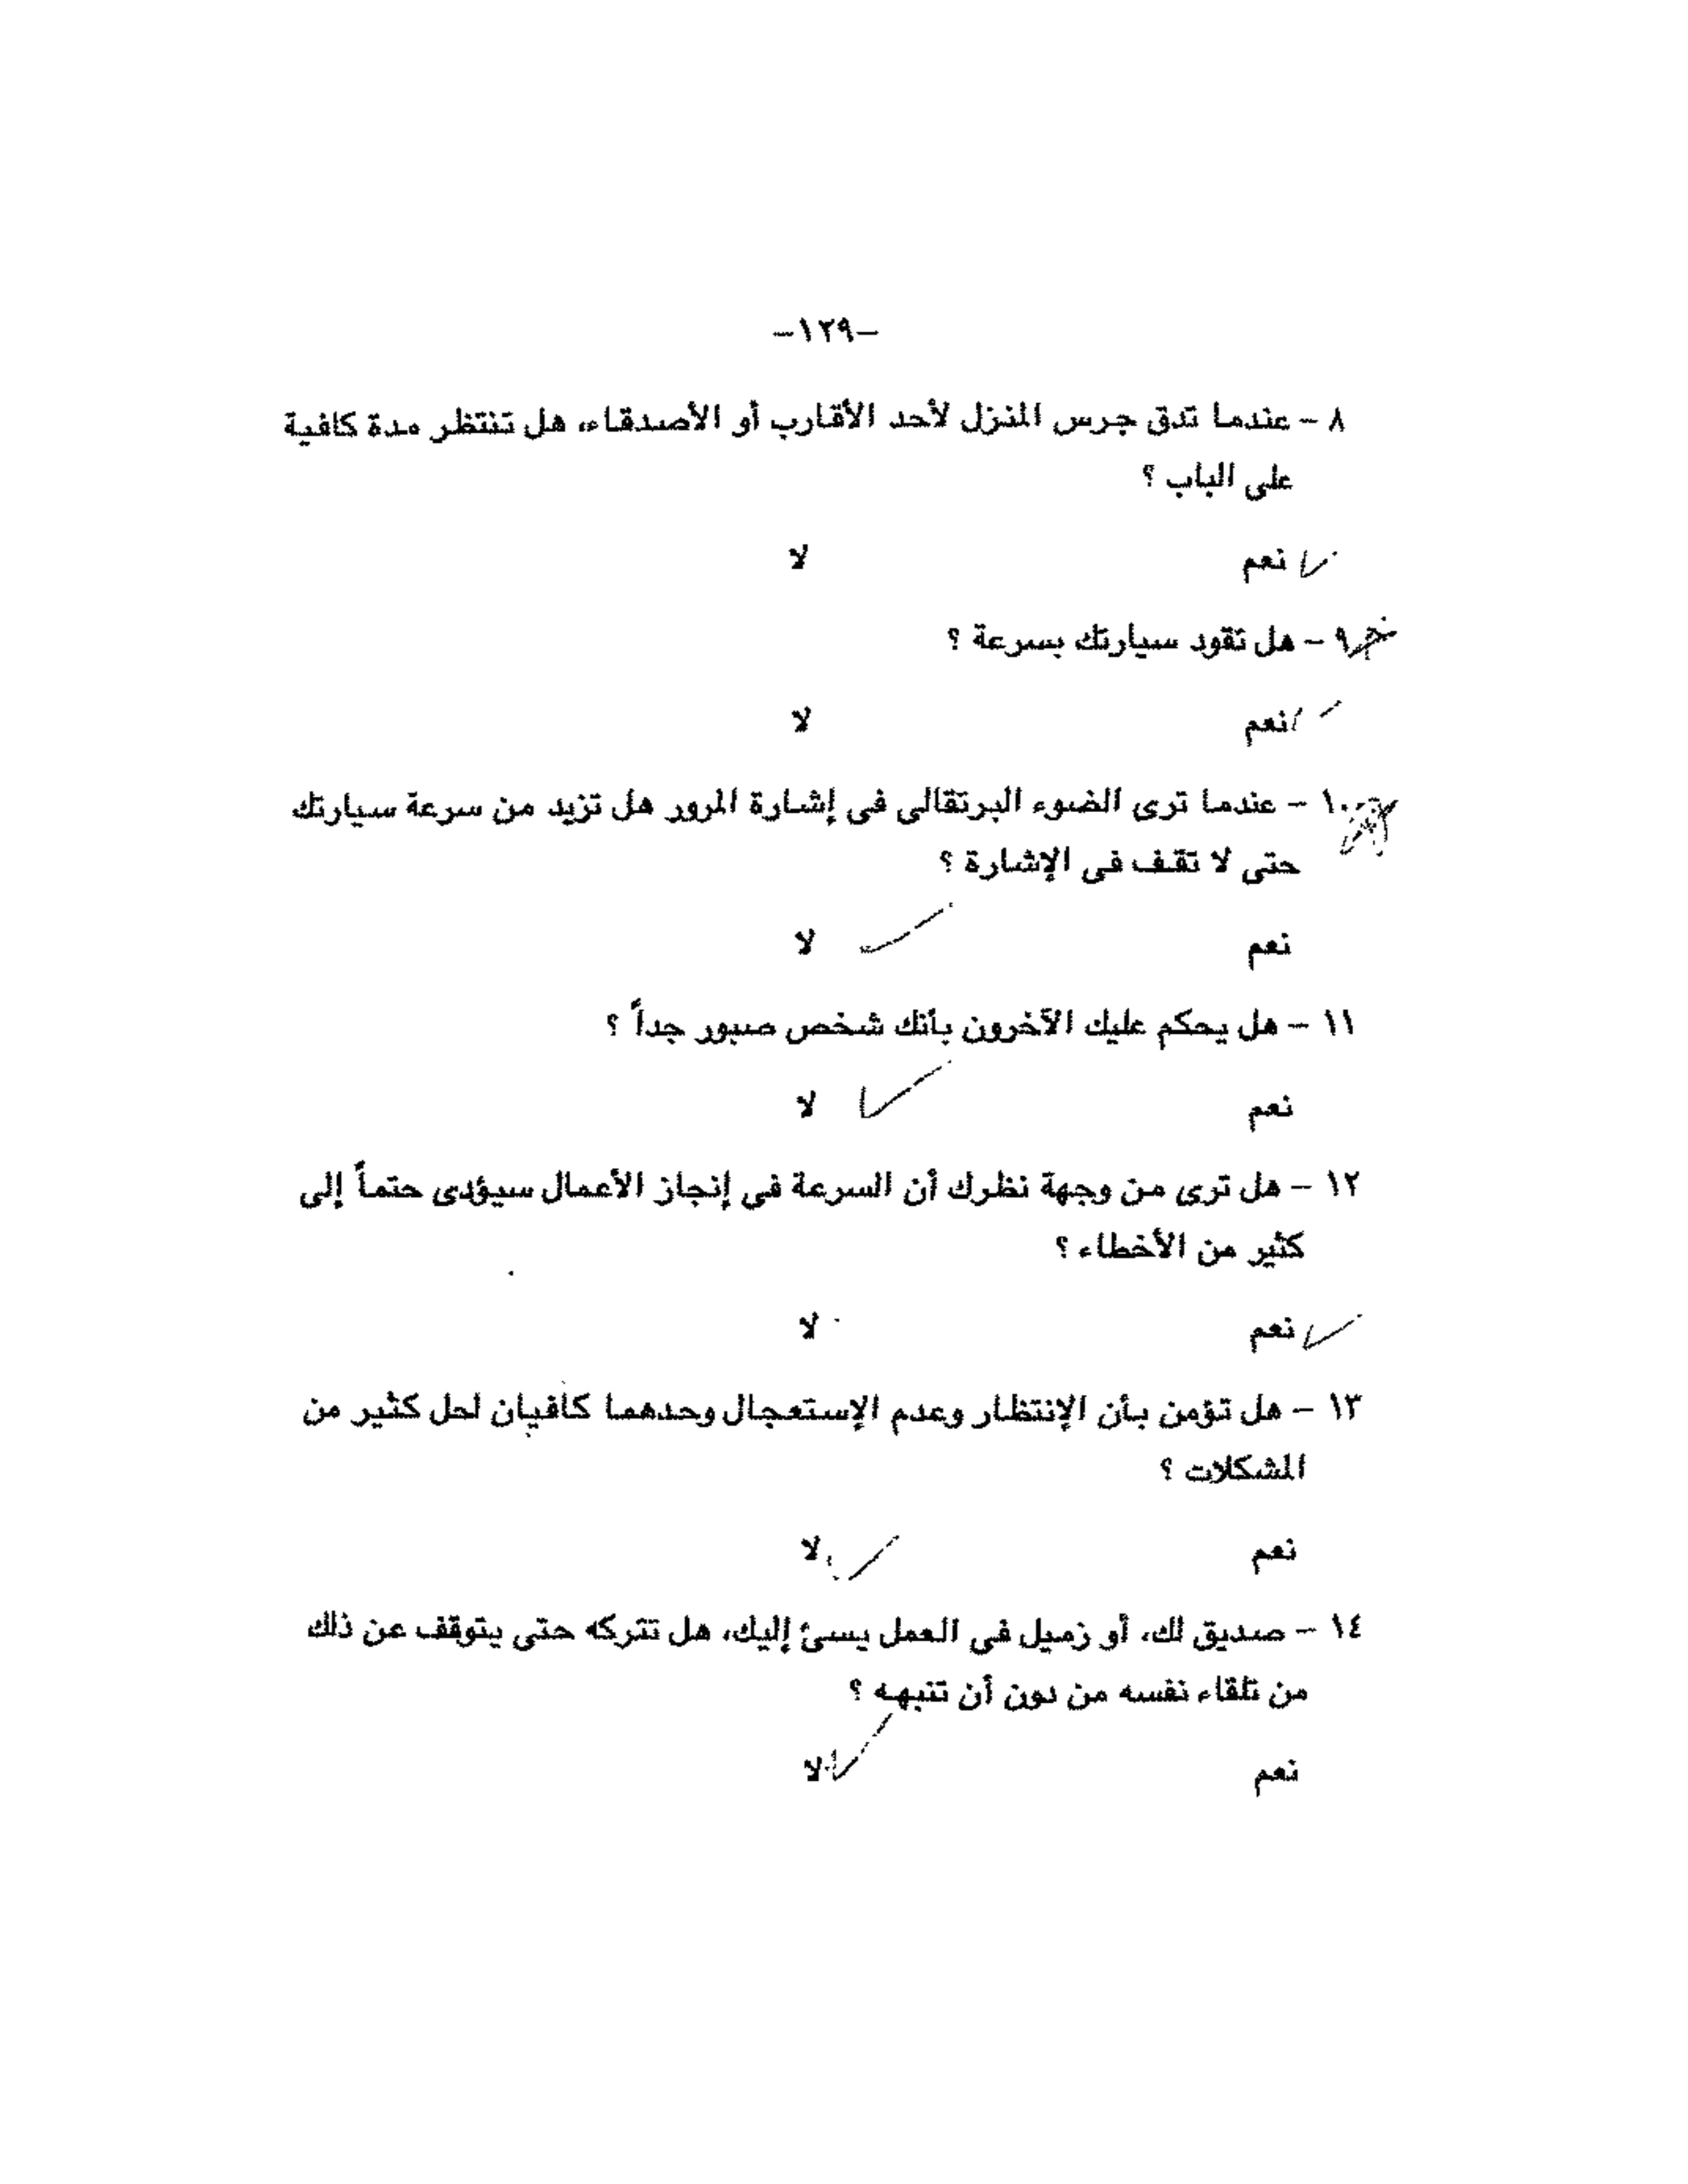 -١٢٩-
٨ - عندما تدق جرس المنزل لأحد الأقارب أو الأصدقاء، هل تنتظر مدة كافية
على الباب ؟
نعم لا
٩ - هل تقود سيارتك بسرعة ؟
نعم لا
١٠ - عندما ترى الضوء البرتقالى فى إشارة المرور هل تزيد من سرعة سيارتك
حتى لا تقف فى الإشارة ؟
نعم لا
١١ - هل يحكم عليك الآخرون بأنك شخص صبور جداً ؟
نعم لا
١٢ - هل ترى من وجهة نظرك أن السرعة فى إنجاز الأعمال سيؤدى حتماً إلى
كثير من الأخطاء ؟
نعم لا
١٣ - هل تؤمن بأن الإنتظار وعدم الإستعجال وحدهما كافيان لحل كثير من
المشكلات ؟
نعم لا
١٤ - صديق لك، أو زميل فى العمل يسئ إليك، هل تتركه حتى يتوقف عن ذلك
من تلقاء نفسه من دون أن تنبهه ؟
نعم لا